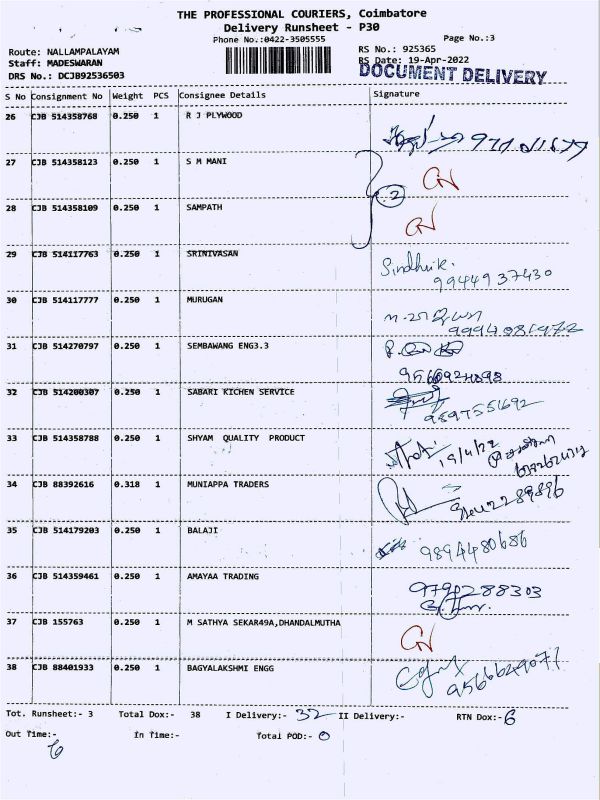 THE PROFESSIONAL COURIERS, Coimbatore
Delivery Runsheet - P30
Phone No.:0422-3505555 Page No.:3
Route: NALLAMPALAYAM RS No.: 925365
Staff: MADESWARAN RS Date: 19-Apr-2022
DRS No.: DCJB92536503 DOCUMENT DELIVERY
S No Consignment No Weight PCS Consignee Details Signature
26 CJB 514358768 0.250 1 R J PLYWOOD
27 CJB 514358123 0.250 1 S M MANI
2
28 CJB 514358109 0.250 1 SAMPATH
29 CJB 514117763 0.250 1 SRINIVASAN Sindhuk.
9944937430
30 CJB 514117777 0.250 1 MURUGAN
9994081972
31 CJB 514270797 0.250 1 SEMBAWANG ENG3.3
32 CJB 514200307 0.250 1 SABARI KICHEN SERVICE
33 CJB 514358788 0.250 1 SHYAM QUALITY PRODUCT 19/4/22
34 CJB 88392616 0.318 1 MUNIAPPA TRADERS
35 CJB 514179203 0.250 1 BALAJI 9894480686
36 CJB 514359461 0.250 1 AMAYAA TRADING 9790288303
37 CJB 155763 0.250 1 M SATHYA SEKAR49A,DHANDALMUTHA
38 CJB 88401933 0.250 1 BAGYALAKSHMI ENGG
Tot. Runsheet:- 3 Total Dox:- 38 I Delivery:- 32 II Delivery:- RTN Dox:- 6
Out Time:- In Time:- Total POD:- 0
6